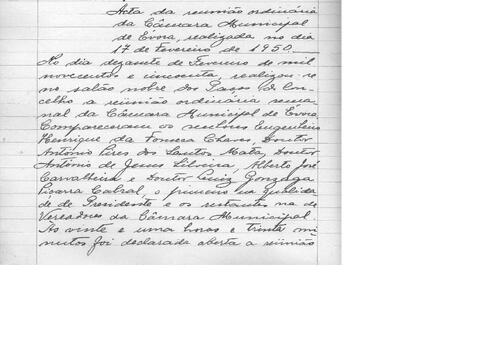 Acta da reunião ordinária
da Câmara Municipal
de Évora, realizada no dia
17 de Fevereiro de 1950
No dia dezasete de Fevereiro de mil
novecentos e cincoenta, realizou-se
no salão nobre dos Paços do Con-
celho a reúnião ordinária sema
nal da Câmara Municipal de Évora.
Compareceram os senhores Engenheiro
Henrique da Fonseca Chaves, Doutor
António Pires dos Santos Mata, Doutor
António de Jesus Silveira, Alberto José
Carvalheira e Doutor Luiz Gonzaga
Picarra Cabral, o primeiro na qualida
de de Presidente e os restantes na de
Vereadores da Câmara Municipal.
Ás vinte e uma horas e trinta mi
nutos foi declarada aberta a reúnião